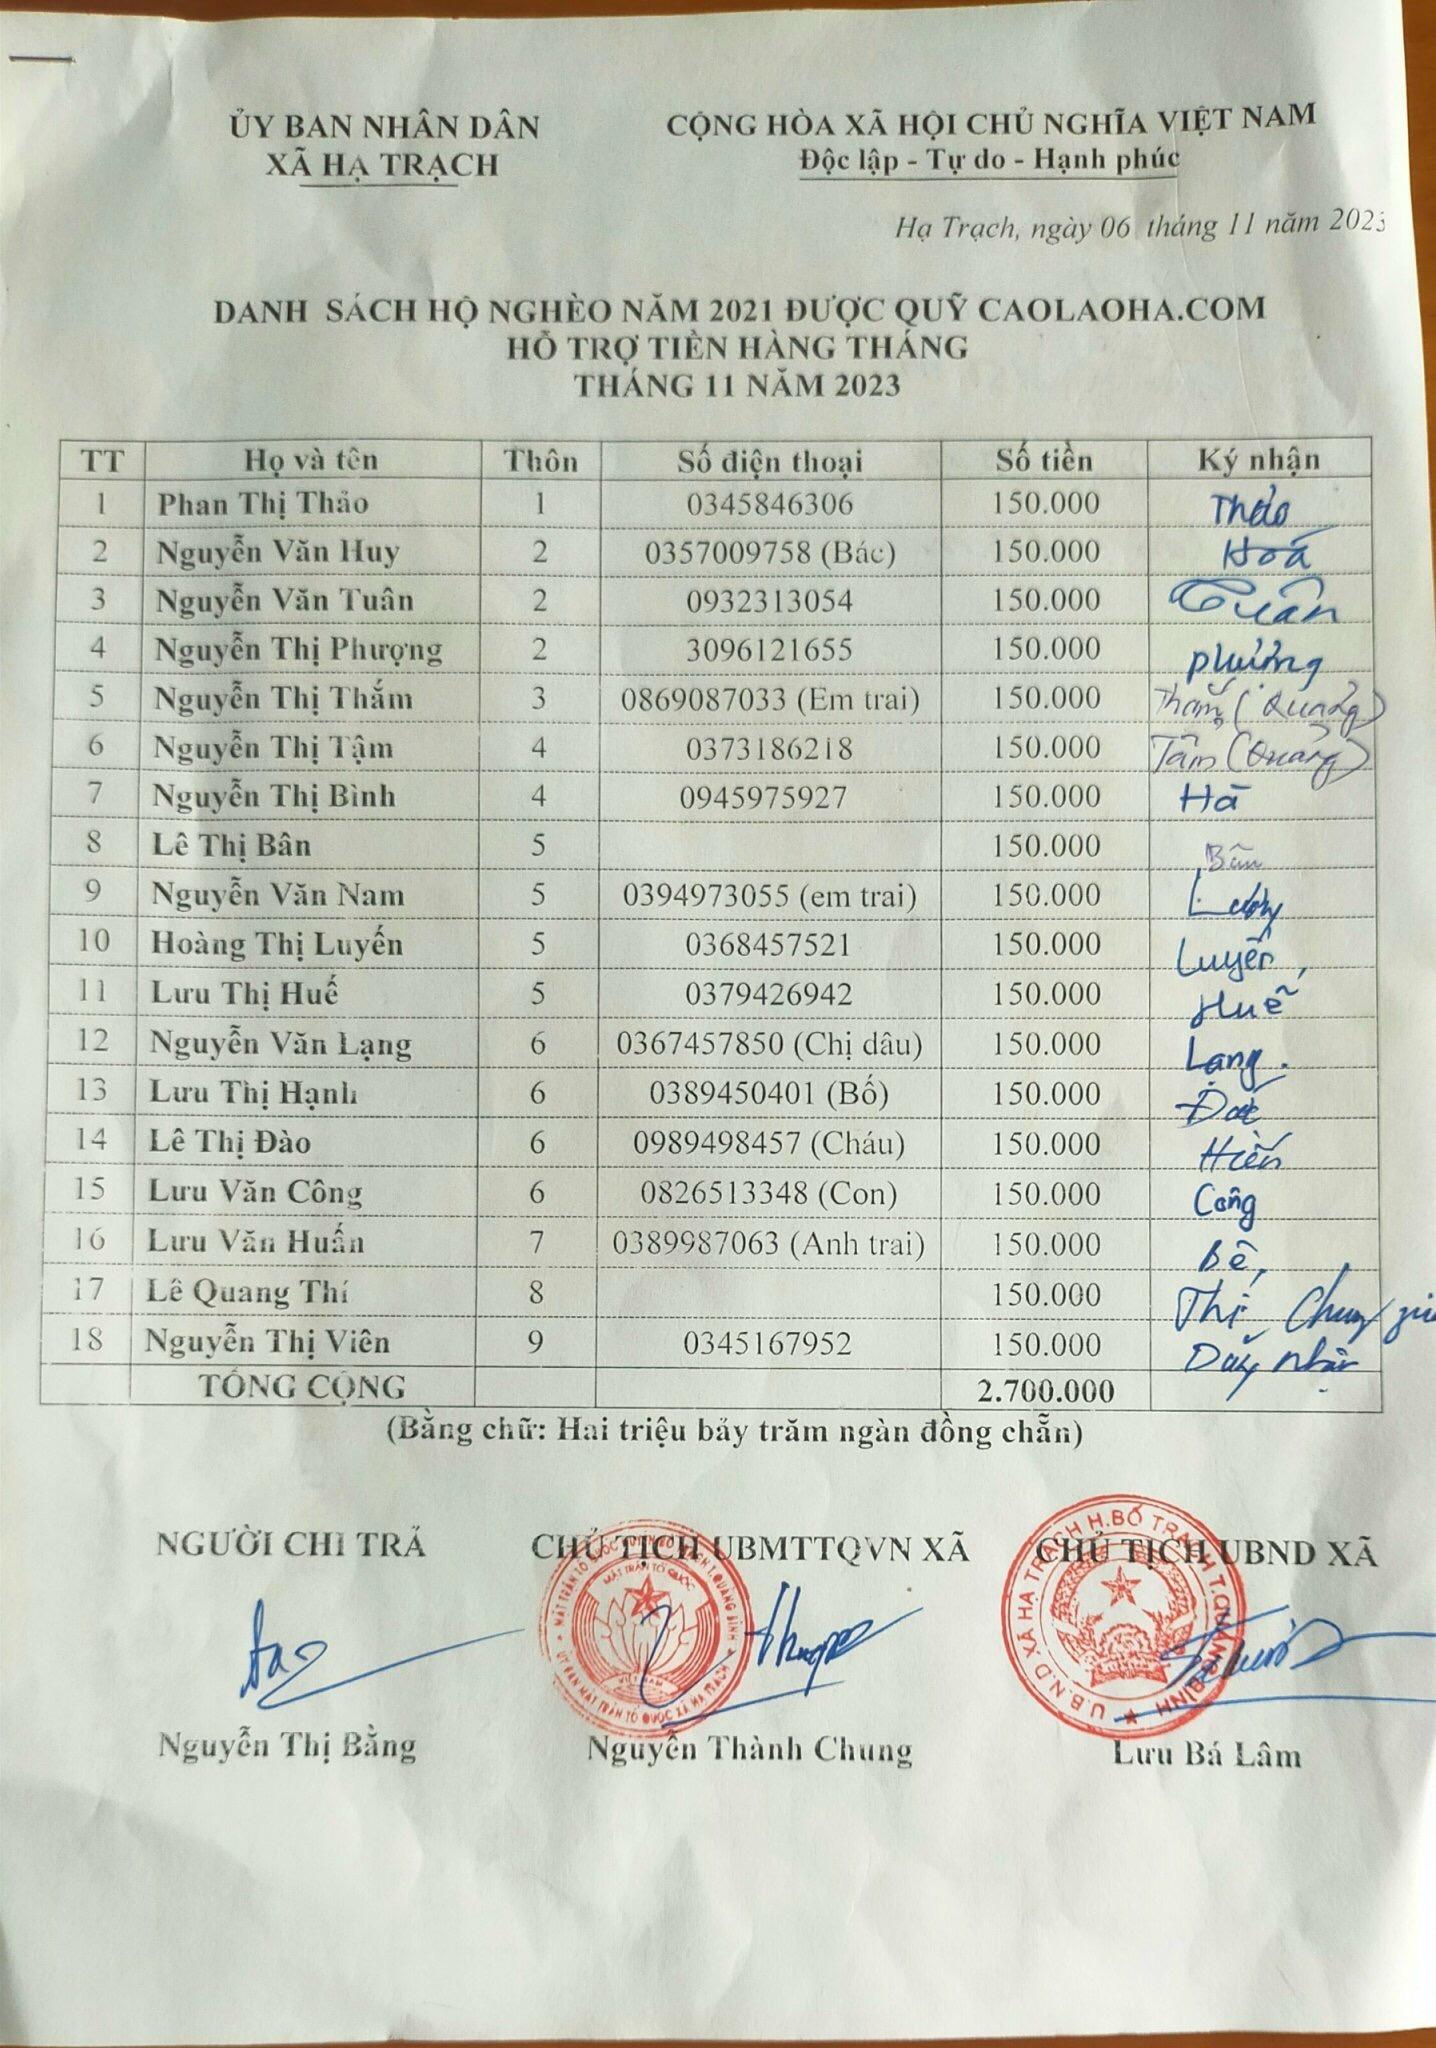 ỦY BAN NHÂN DÂN
XÃ HẠ TRẠCH
CỘNG HÒA XÃ HỘI CHỦ NGHĨA VIỆT NAM
Độc lập - Tự do - Hạnh phúc
Hạ Trạch, ngày 06 tháng 11 năm 2023
DANH SÁCH HỘ NGHÈO NĂM 2021 ĐƯỢC QUỸ CAOLAOHA.COM
HỖ TRỢ TIỀN HÀNG THÁNG
THÁNG 11 NĂM 2023
TT Họ và tên Thôn Số điện thoại Số tiền Ký nhận
1 Phan Thị Thảo 1 0345846306 150.000 Thảo
2 Nguyễn Văn Huy 2 0357009758 (Bác) 150.000 Hoá
3 Nguyễn Văn Tuân 2 0932313054 150.000 Tuân
4 Nguyễn Thị Phượng 2 3096121655 150.000 phượng
5 Nguyễn Thị Thắm 3 0869087033 (Em trai) 150.000 Thắm (Quảng)
6 Nguyễn Thị Tậm 4 0373186218 150.000 Tâm (Quảng)
7 Nguyễn Thị Bình 4 0945975927 150.000 Hà
8 Lê Thị Bân 5 150.000 Bân
9 Nguyễn Văn Nam 5 0394973055 (em trai) 150.000
10 Hoàng Thị Luyến 5 0368457521 150.000 Luyến
11 Lưu Thị Huế 5 0379426942 150.000 Huế
12 Nguyễn Văn Lạng 6 0367457850 (Chị dâu) 150.000 Lạng.
13 Lưu Thị Hạnh 6 0389450401 (Bố) 150.000
14 Lê Thị Đào 6 0989498457 (Cháu) 150.000 Hiền
15 Lưu Văn Công 6 0826513348 (Con) 150.000 Công
16 Lưu Văn Huấn 7 0389987063 (Anh trai) 150.000 Bê
17 Lê Quang Thí 8 150.000 Thị
18 Nguyễn Thị Viên 9 0345167952 150.000
TỔNG CỘNG 2.700.000
(Bằng chữ: Hai triệu bảy trăm ngàn đồng chẵn)
NGƯỜI CHI TRẢ
CHỦ TỊCH UBMTTQVN XÃ
CHỦ TỊCH UBND XÃ
MẶT TRẬN TỔ QUỐC
VIỆT NAM
ỦY BAN MẶT TRẬN TỔ QUỐC XÃ HẠ TRẠCH
U.B.N.D XÃ HẠ TRẠCH H.BỐ TRẠCH T.QUẢNG BÌNH
Nguyễn Thị Bằng
Nguyễn Thành Chung
Lưu Bá Lâm